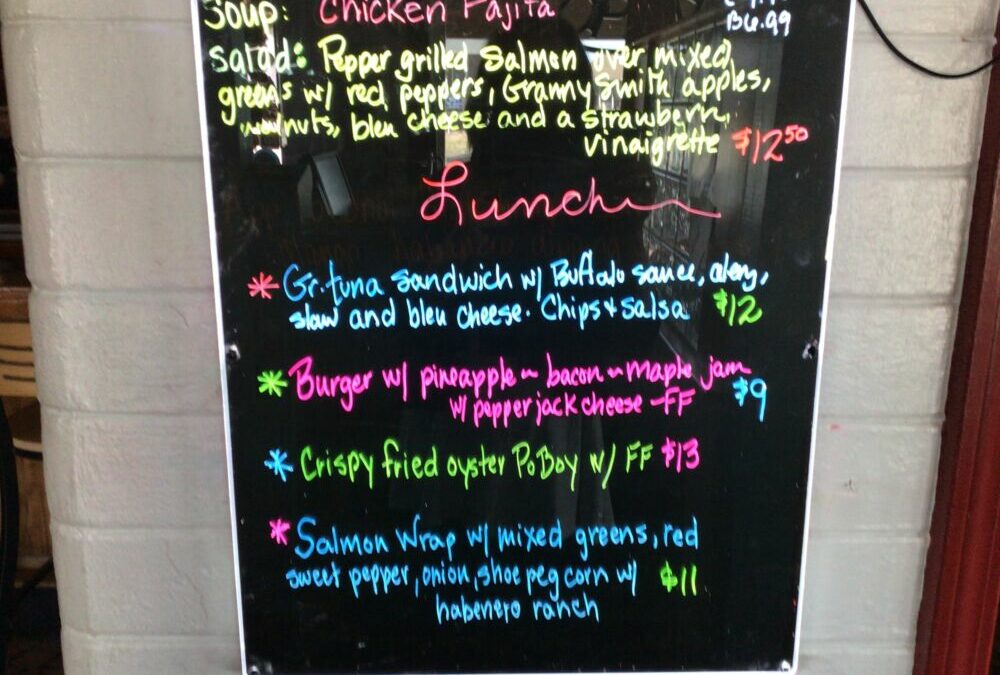 Soup: Chicken Fajita
B6.99
Salad: Pepper grilled Salmon over mixed
greens w/ red peppers, Granny Smith apples,
walnuts, bleu cheese and a strawberry
vinaigrette $12.50
Lunch
* Gr. tuna sandwich w/ Buffalo sauce, celery,
slaw and bleu cheese. Chips + Salsa $12
* Burger w/ pineapple ~ bacon ~ maple jam
w/ pepper jack cheese - FF $9
* Crispy fried oyster PoBoy w/ FF $13
* Salmon Wrap w/ mixed greens, red
sweet pepper, onion, shoe peg corn w/ $11
habenero ranch